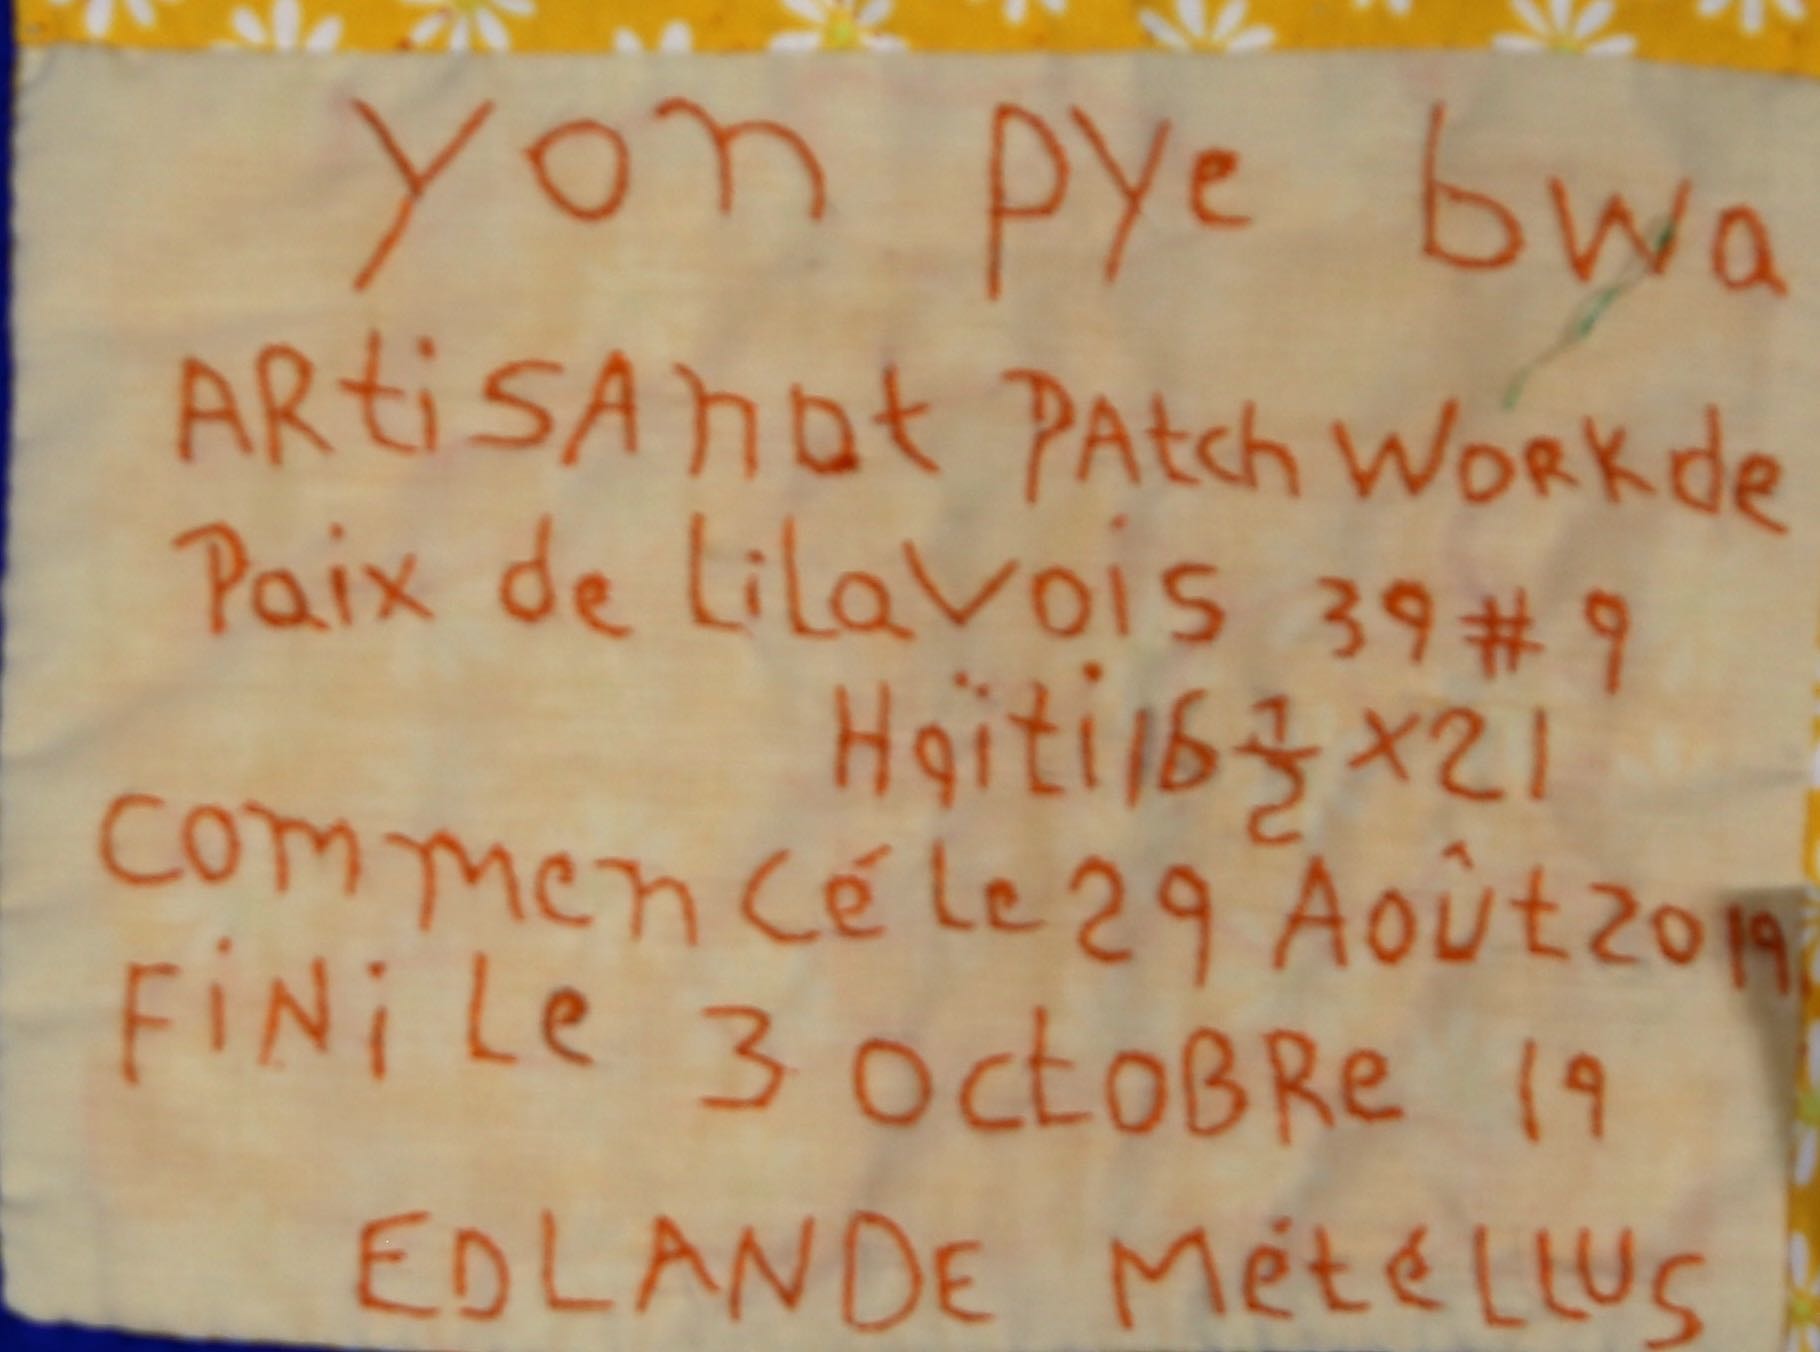 yon pye bwa
ARtiSAnat PAtchWoRK de
Paix de LiLavois 39 # 9
Haïti 16 1/2 x 21
commencé Le 29 Août 2019
FiNi Le 3 octoBRe 19
EDLANDE MétéLLUS